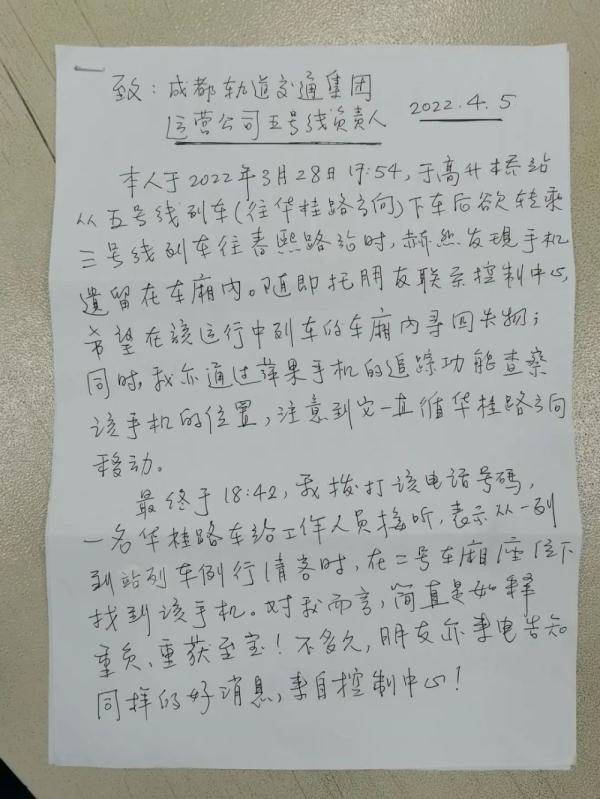 致：成都轨道交通集团
运营公司五号线负责人
2022.4.5
本人于2022年3月28日17:54，于高升桥站
从五号线列车(往华桂路方向)下车后欲转乘
三号线列车往春熙路站时，赫然发现手机
遗留在车厢内。随即托朋友联系控制中心，
希望在該运行中列车的车厢内寻回失物；
同时，我亦通过苹果手机的追踪功能查察
该手机的位置，注意到它一直循华桂路方向
移动。
最终于18:42，我拨打该电话号码，
一名华桂路车站工作人员接听，表示从一列
到站列车例行清客时，在二号车厢座位下
找到该手机。对我而言，简直是如释
重负、重获至宝！不多久，朋友亦来电告知
同样的好消息，来自控制中心！